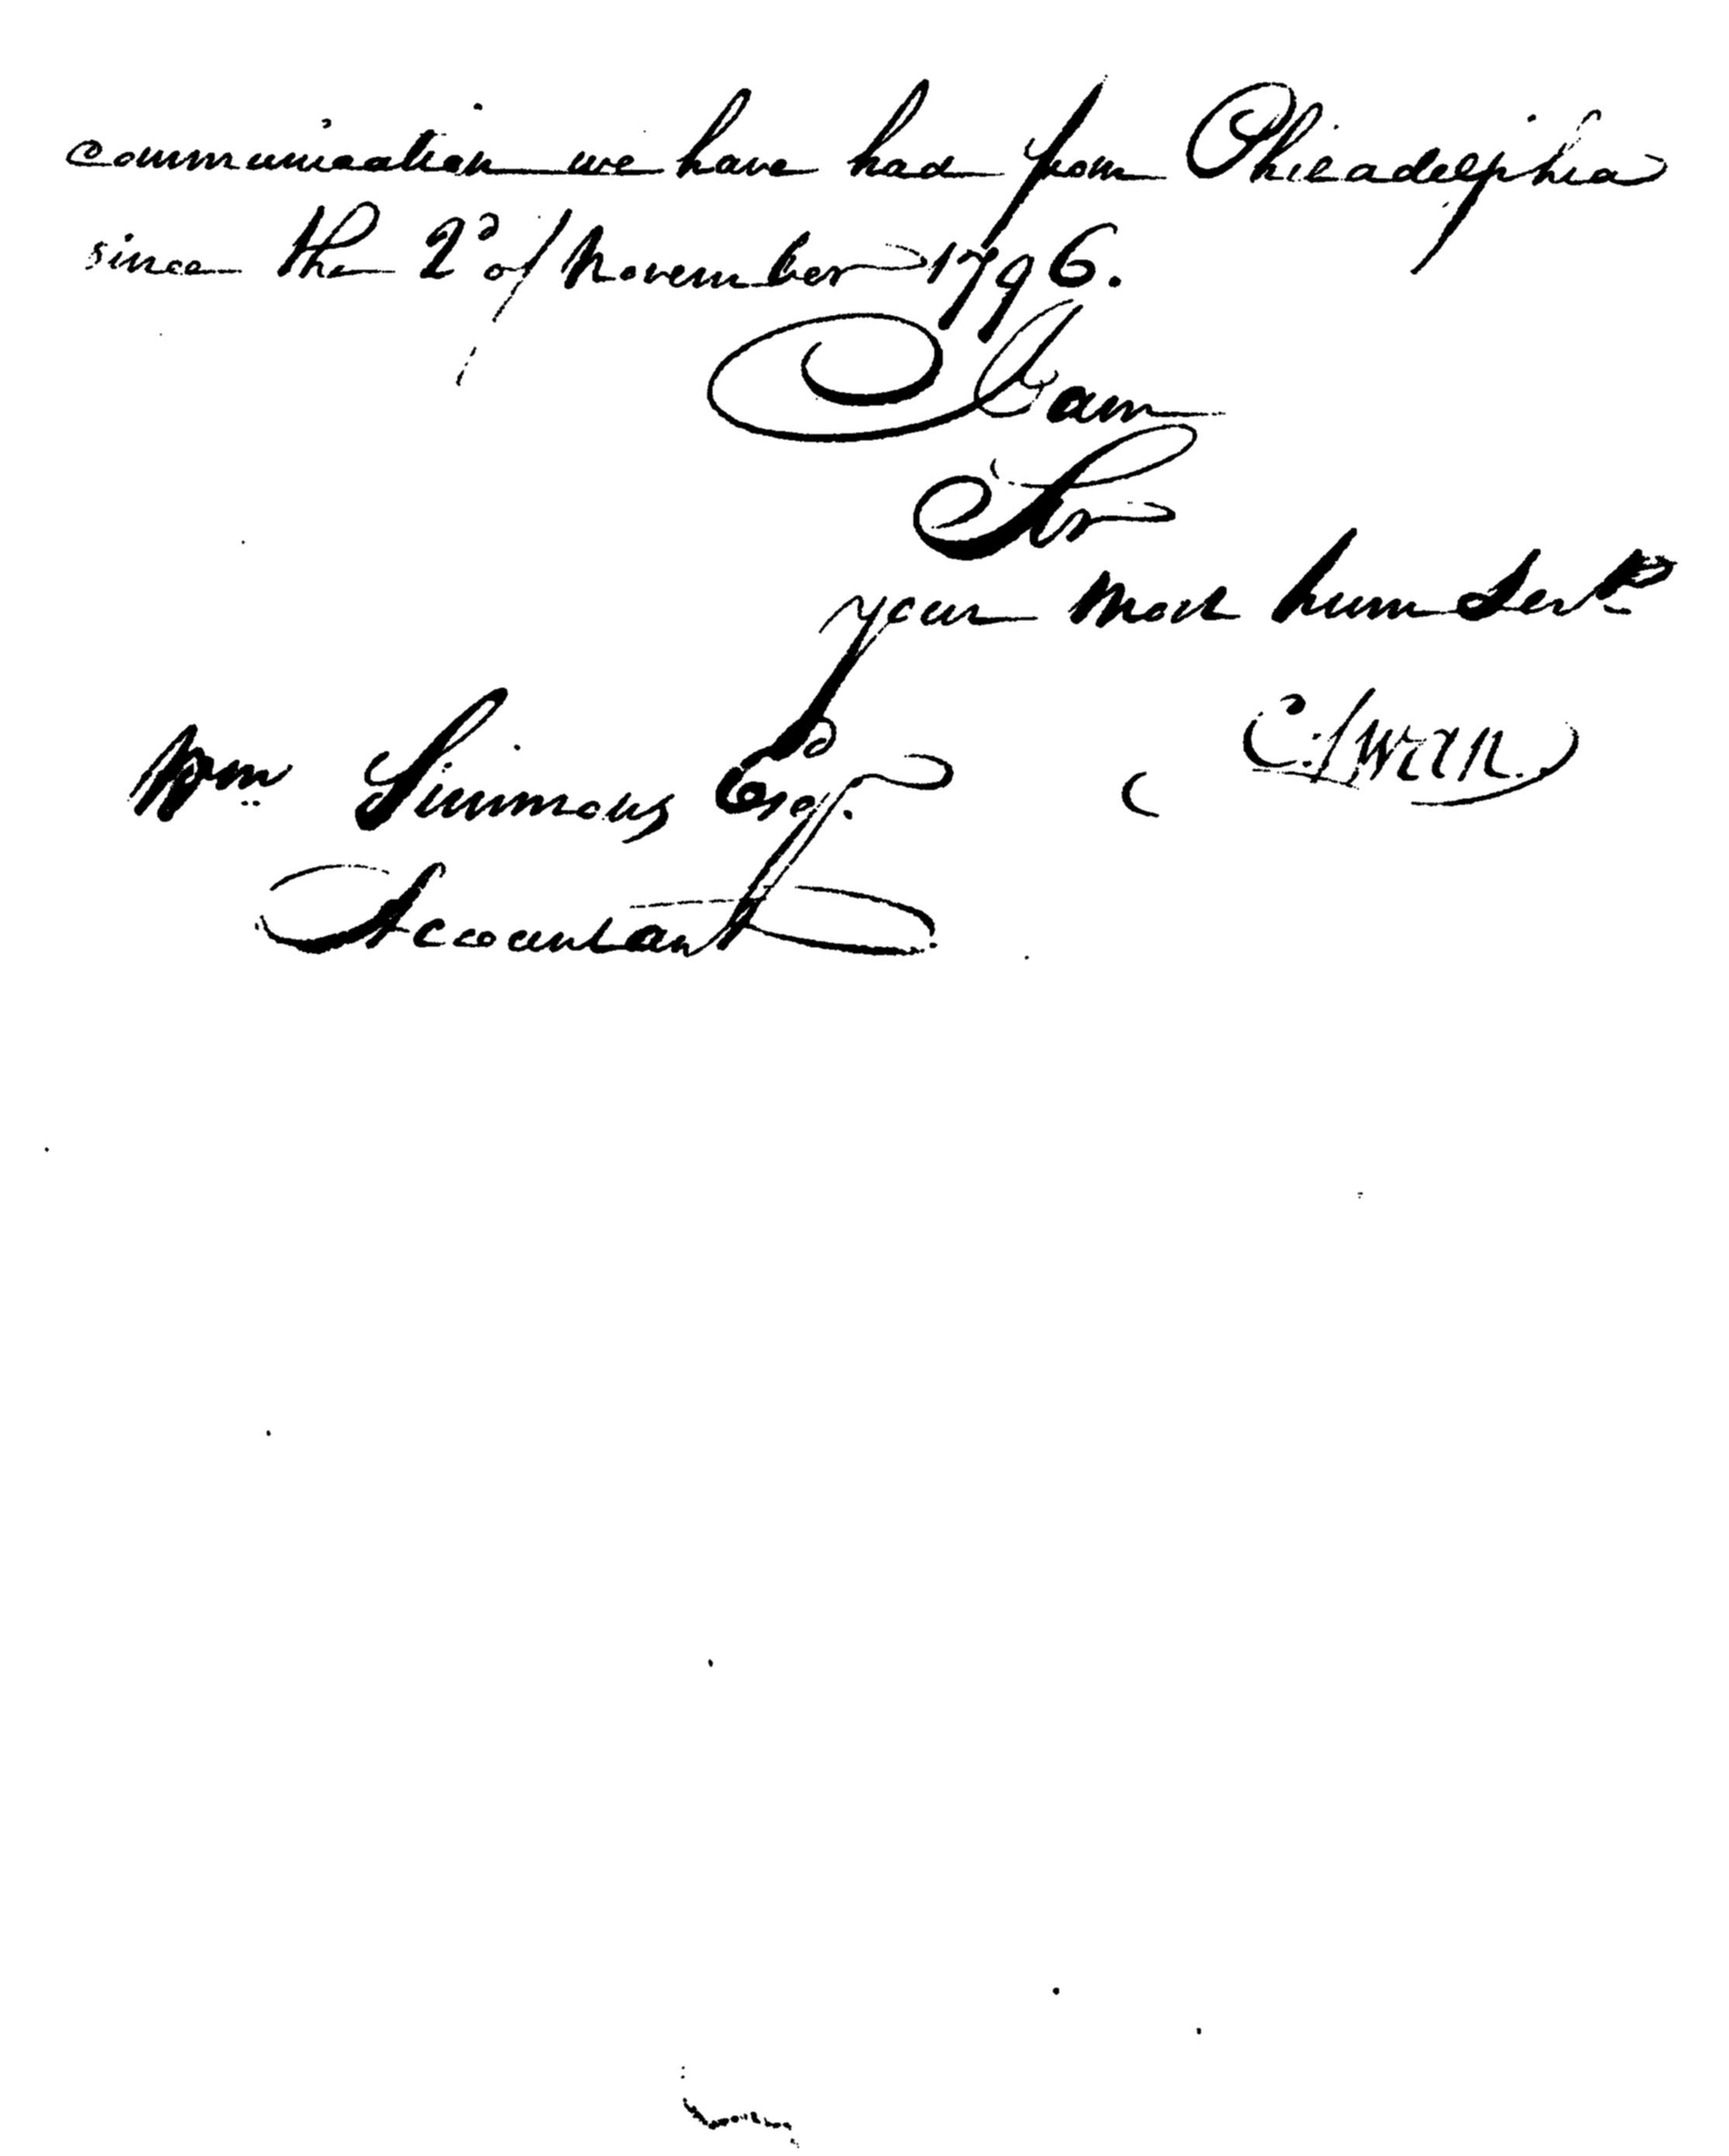 communication we have had from Philadelphia
since the 2d of November 1796.
I am
Sir
your most hum Servt
C. Swan
Wm Simmons Esqr.
Accountant